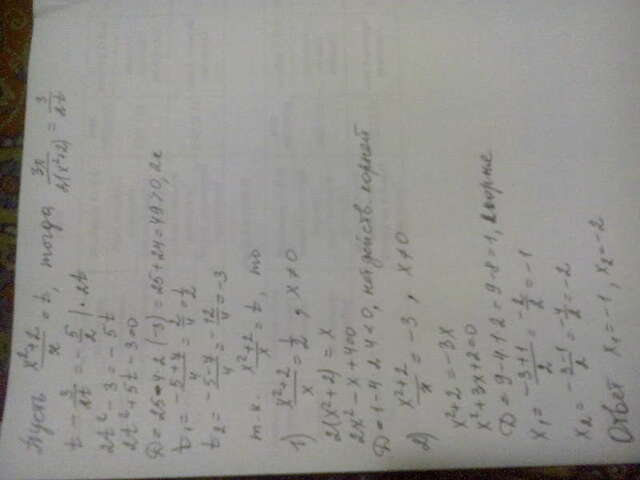 Пусть (x²+2)/x = t, тогда 3x/(2(x²+2)) = 3/(2t)
t - 3/(2t) = -5/2 | · 2t
2t² - 3 = -5t
2t² + 5t - 3 = 0
D = 25 - 4·2·(-3) = 25 + 24 = 49 > 0, 2к
t₁ = (-5+7)/4 = 2/4 = 1/2
t₂ = (-5-7)/4 = -12/4 = -3
т.к. (x²+2)/x = t, то
1) (x²+2)/x = 1/2, x ≠ 0
2(x²+2) = x
2x² - x + 4 = 0
D = 1 - 4·2·4 < 0, нет действ. корней
2) (x²+2)/x = -3, x ≠ 0
x² + 2 = -3x
x² + 3x + 2 = 0
D = 9 - 4·1·2 = 9 - 8 = 1, 2 корня
x₁ = (-3+1)/2 = -2/2 = -1
x₂ = (-3-1)/2 = -4/2 = -2
Ответ x₁ = -1, x₂ = -2